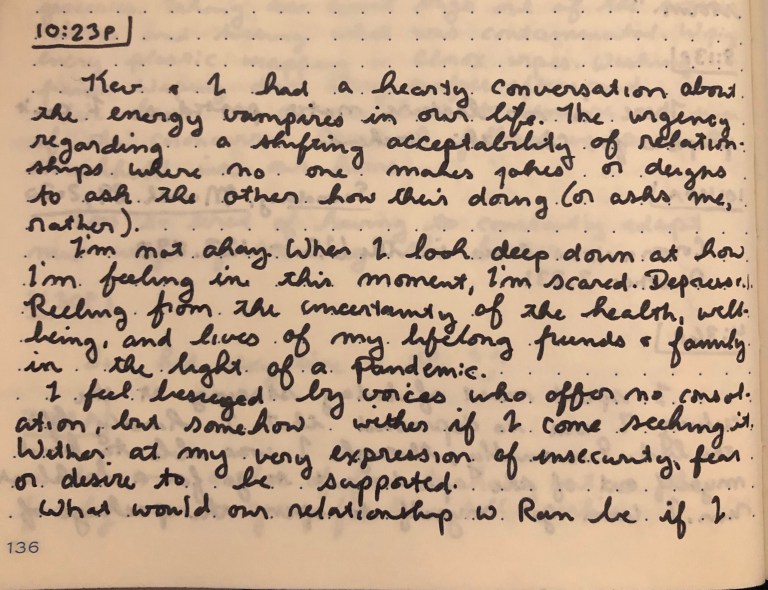 10:23p.
Kev & I had a hearty conversation about
the energy vampires in our life. The urgency
regarding a shifting acceptability of relation-
ships where no one makes jokes or deigns
to ask the other how their doing (or asks me,
rather).
I'm not okay. When I look deep down at how
I'm feeling in this moment, I'm scared. Depressed.
Reeling from the uncertainty of the health, well-
being, and lives of my lifelong friends & family
in the light of a pandemic.
I feel besieged by voices who offer no consol-
ation, but somehow wither if I come seeking it.
Wither at my very expression of insecurity, fear
or desire to be supported.
What would our relationship w. Ran be if I
136